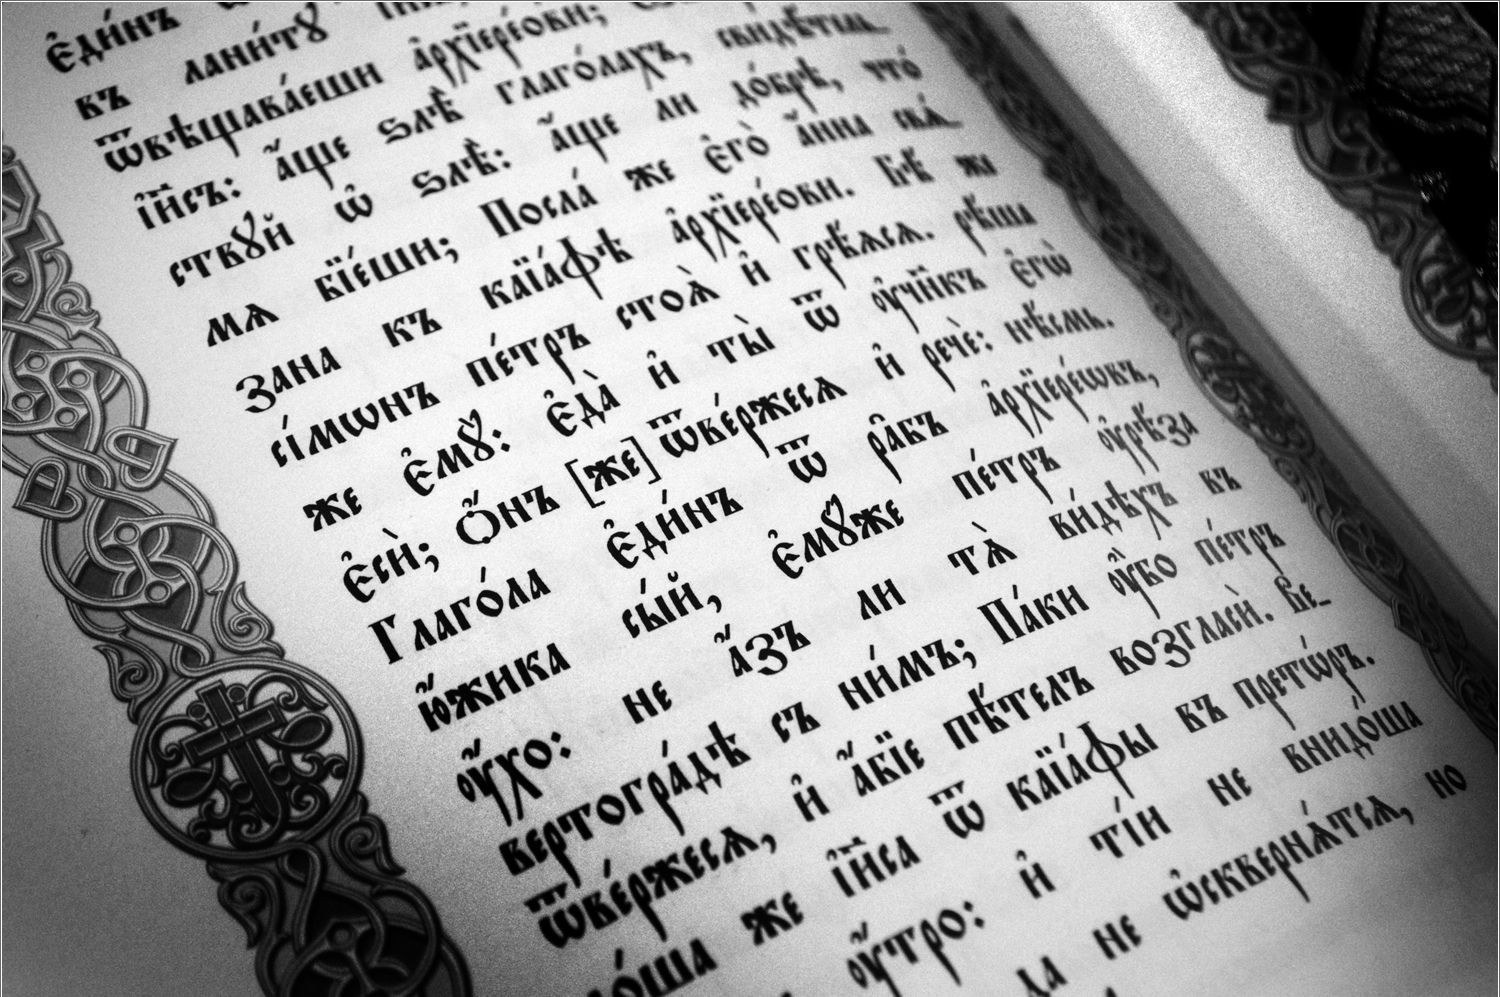 є҆ди́нъ
въ лани́тꙋ
ѿвѣщава́еши а҆рхїере́ови;
і҆и҃съ: а҆́ще ѕлѣ̀ глаго́лахъ, свидѣ́тель_
ствꙋ́й ѡ҆ ѕлѣ̀: а҆́ще ли до́брѣ, что́
мѧ бїе́ши; Посла́ же є҆го̀ а҆́нна свѧ́_
зана къ каїа́фѣ а҆рхїере́ови. Бѣ́ же
сі́мѡнъ пе́тръ стоѧ̀ и҆ грѣ́ѧсѧ. рѣ́ша
же є҆мꙋ̀: є҆да̀ и҆ ты̀ ѿ ᲂу҆чн҃къ є҆гѡ̀
є҆сѝ; Ѻ҆́нъ [же] ѿве́ржесѧ и҆ речѐ: нѣ́смь.
Глаго́ла є҆ди́нъ ѿ ра̑бъ а҆рхїере́ѡвъ,
ю҆́жика сы́й, є҆мꙋ́же пе́тръ ᲂу҆рѣ́за
ᲂу҆́хо: не а҆́зъ ли тѧ̀ ви́дѣхъ въ
вертогра́дѣ съ ни́мъ; Па́ки ᲂу҆̀бо пе́тръ
ѿве́ржесѧ, и҆ а҆́бїе пѣ́тель возгласѝ. Ве_
до́ша же і҆и҃са ѿ каїа́фы въ прето́ръ.
ᲂу҆́тро: и҆ ті́и не внидо́ша
да не ѡ҆сквернѧ́тсѧ, но